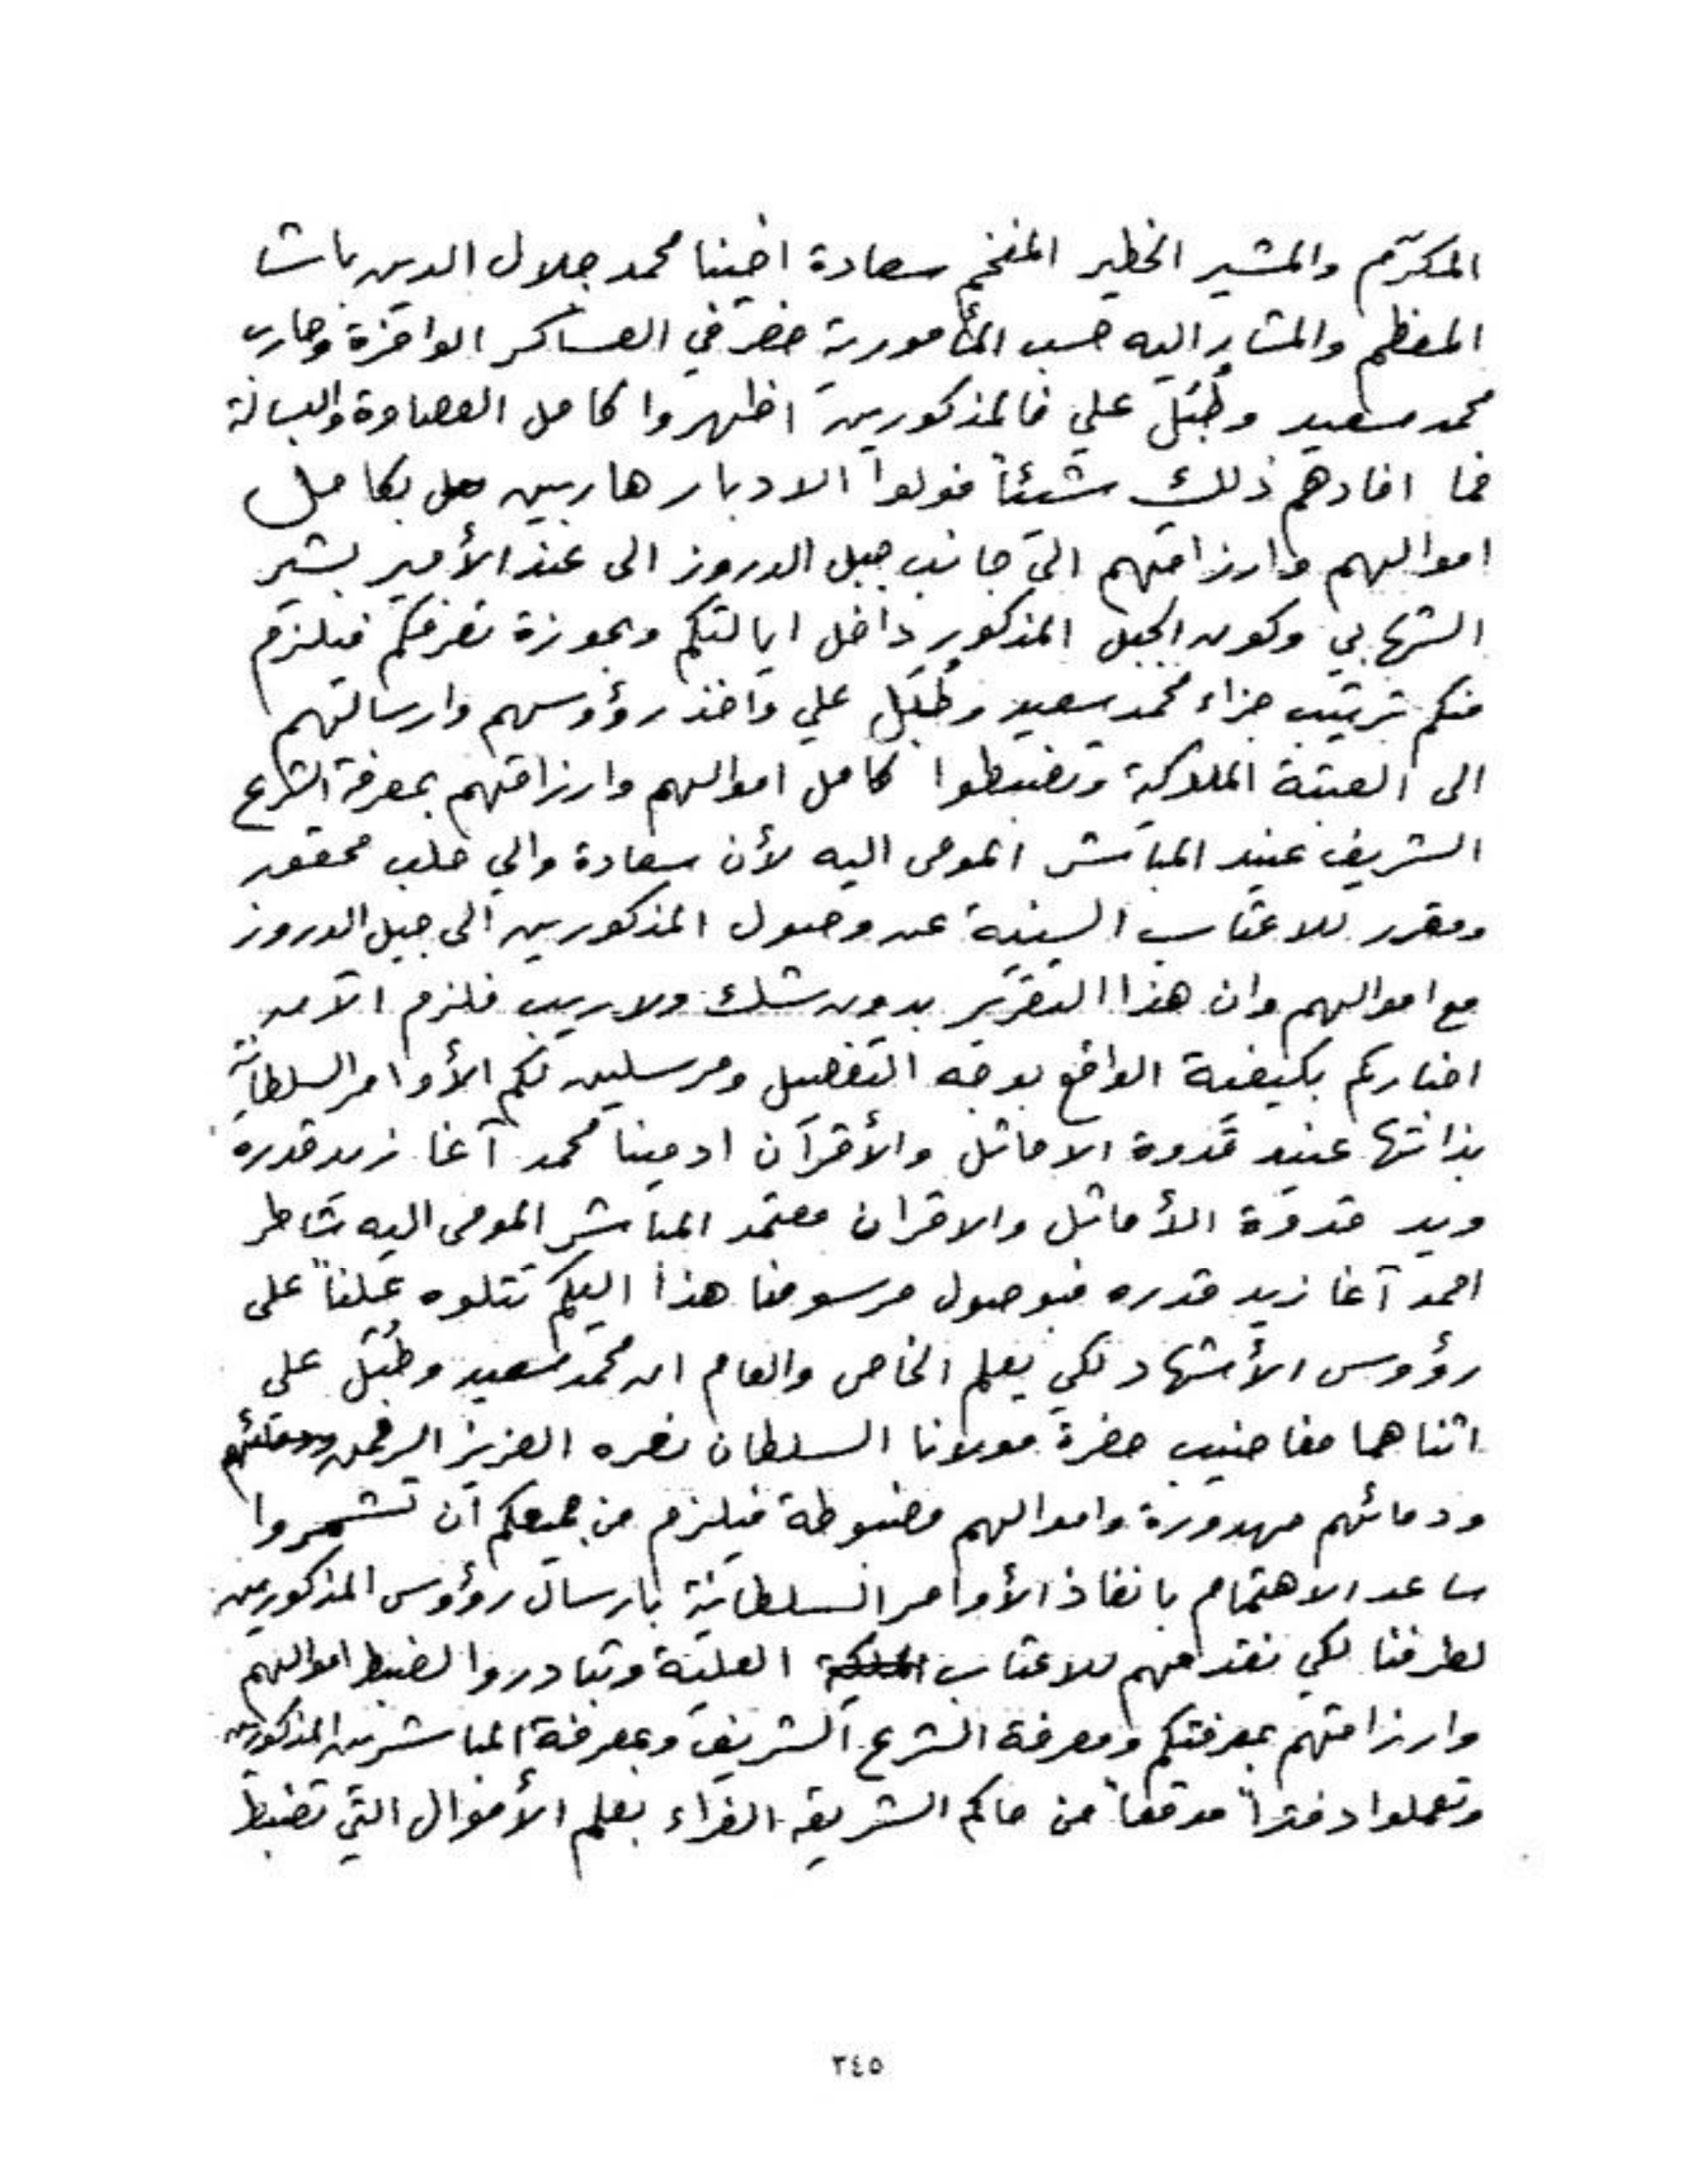 المكرّم والمشير الخطير المفخم سعادة اخينا محمد جلال الدين باشا
المعظم والمشار اليه حسب المأمورية حضر في العساكر الوافرة وحارب
محمد سعيد وطُبَل علي فالمذكورين اظهروا كامل العصاوة والبسالة
فما افادهم ذلك شيئاً فولوا الادبار هاربين بكامل
اموالهم وارزاقهم الى جانب جبل الدروز الى عند الأمير بشير
الشهابي وكون الجبل المذكور داخل ايالتكم وبحوزة تصرفكم فيلزم
منكم ترتيب جزاء محمد سعيد وطُبَل علي واخذ رؤوسهم وارسالهم
الى العتبة الملوكية وتضبطوا كامل اموالهم وارزاقهم بمعرفة الشرع
الشريف عنيد المباشر المومى اليه لأن سعادة والي حلب محقق
ومقرر للاعتاب السنية عن وصول المذكورين الى جبل الدروز
مع اموالهم وان هذا التقرير بدون شك ولا ريب فلزم الآن
اخباركم بكيفية الواقع بوجه التفصيل ومرسلين لكم الأوامر السلطانية
بذاتها عنيد قدوة الاماثل والأقران ادميننا محمد آغا زيد قدره
ويد قدوة الأماثل والاقران معتمد المباشر المومى اليه شاطر
احمد آغا زيد قدره فبوصول مرسومنا هذا اليكم تتلوه علناً على
رؤوس الأشهاد لكي يعلم الخاص والعام ان محمد سعيد وطُبَل علي
اثناهما مغاضيب حضرة مولانا السلطان نصره العزيز الرحمن
ودمائهم مهدورة واموالهم مضبوطة فيلزم من جميعكم أن تشمروا
ساعد الاهتمام بانفاذ الأوامر السلطانية بارسال رؤوس المذكورين
لطرفنا لكي نقدمهم للاعتاب العلية وتبادروا لضبط اموالهم
وارزاقهم بمعرفتكم ومعرفة الشرع الشريف وبمعرفة المباشرين المذكورين
وتعملوا دفتراً موقعاً من حاكم الشريعة الغراء بعلم الأموال التي تضبط
٣٤٥